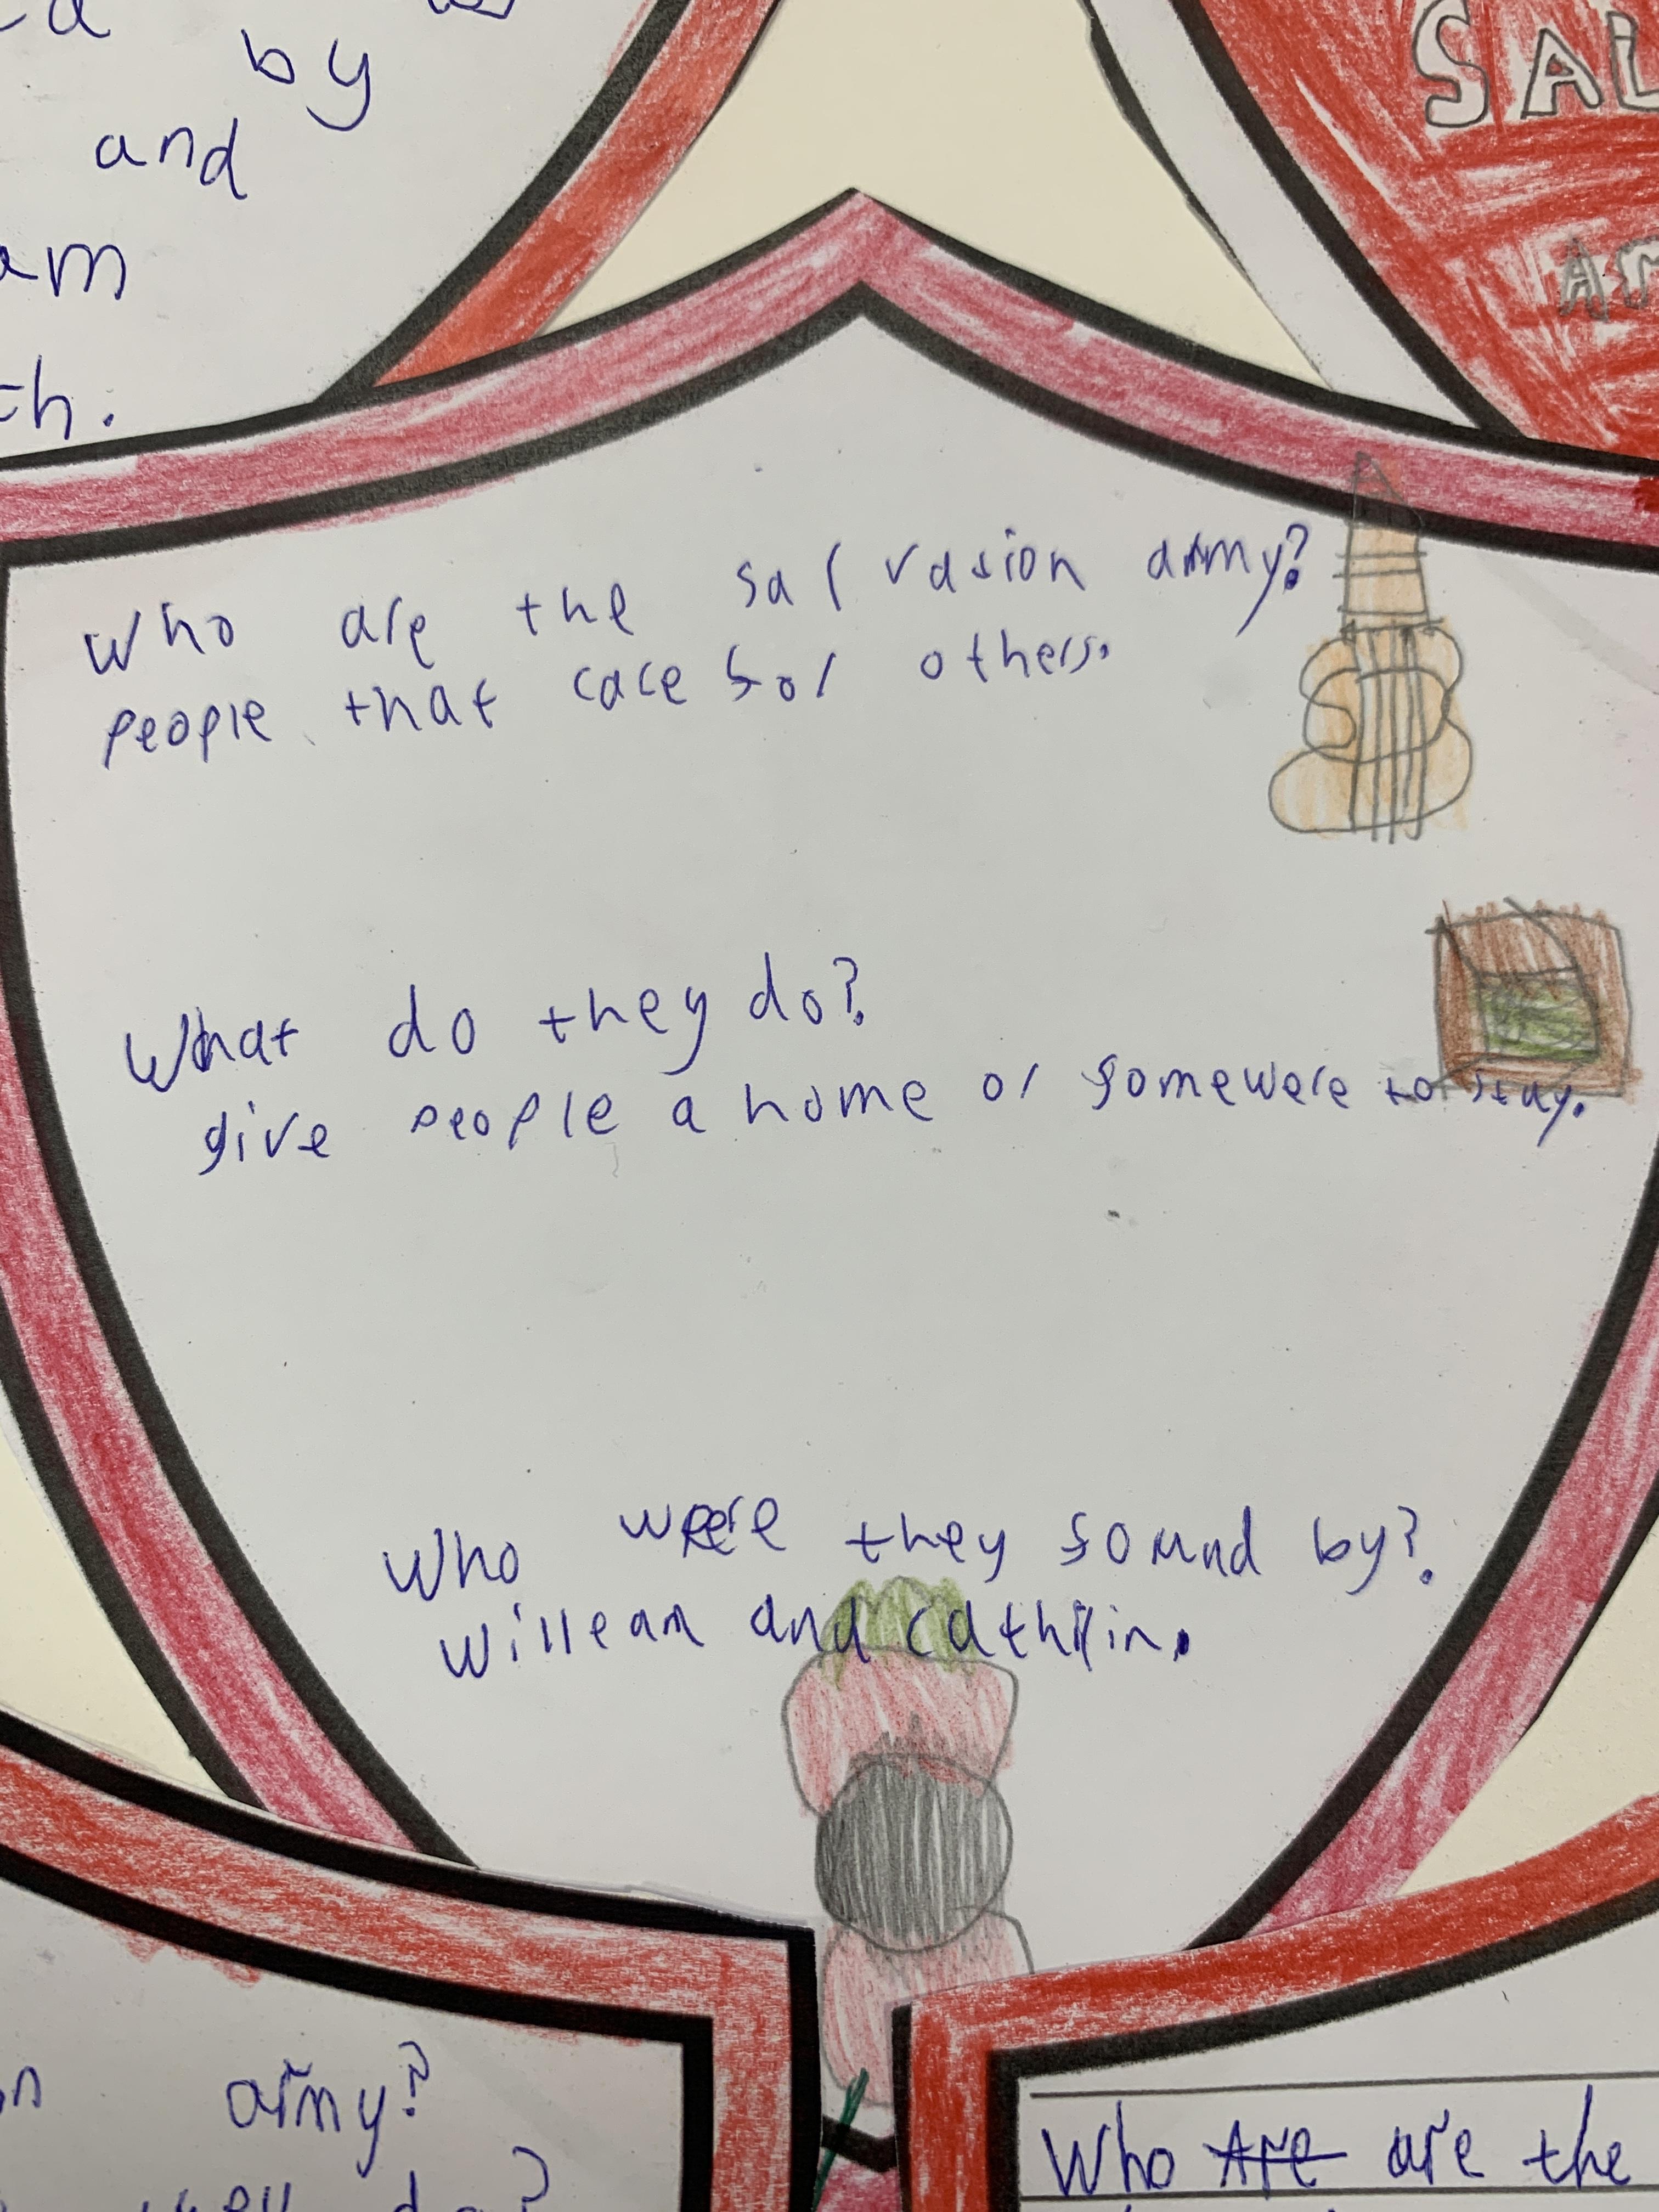 by
and
am
th.
SAL
Ar
Who are the salvasion army?
people that care for others.
What do they do?
give people a home or somewere to stay.
Who were they found by?
Willeam and cathilin.
army?
they do?
Who Are are the